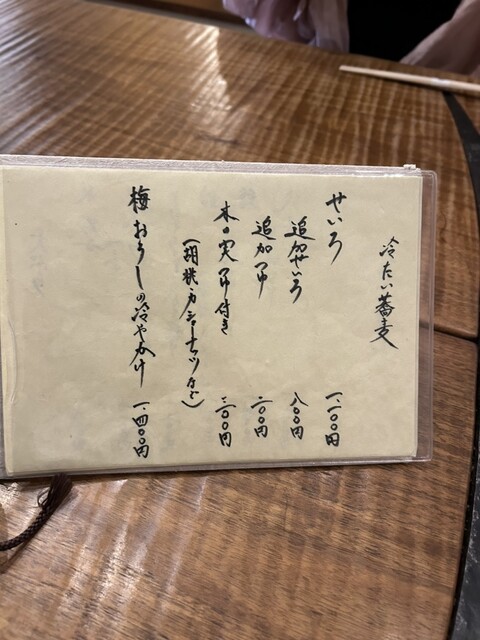 冷たい蕎麦
せいろ 一、一〇〇円
追加せいろ 八〇〇円
追加つゆ
木の実つゆ付き
(胡桃・カシューナッツなど)
梅おろしの冷やかけ 一、四〇〇円